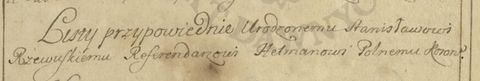 Listy przypowiednie Urodzonemu Stanisławowi
Rzewuskiemu Referendarzowi Hetmanowi Polnemu Koron.